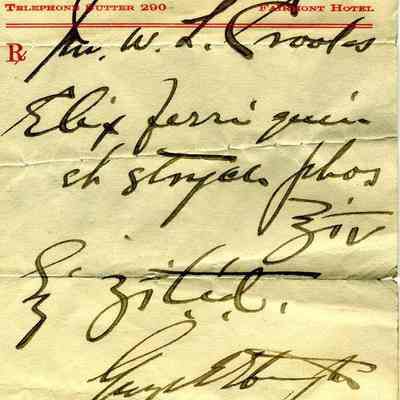 Telephone Sutter 290 Fairmont Hotel
℞ W. L. Crooks
Elix ferri quin
et strych phos
℥iv
℥i t.i.d.